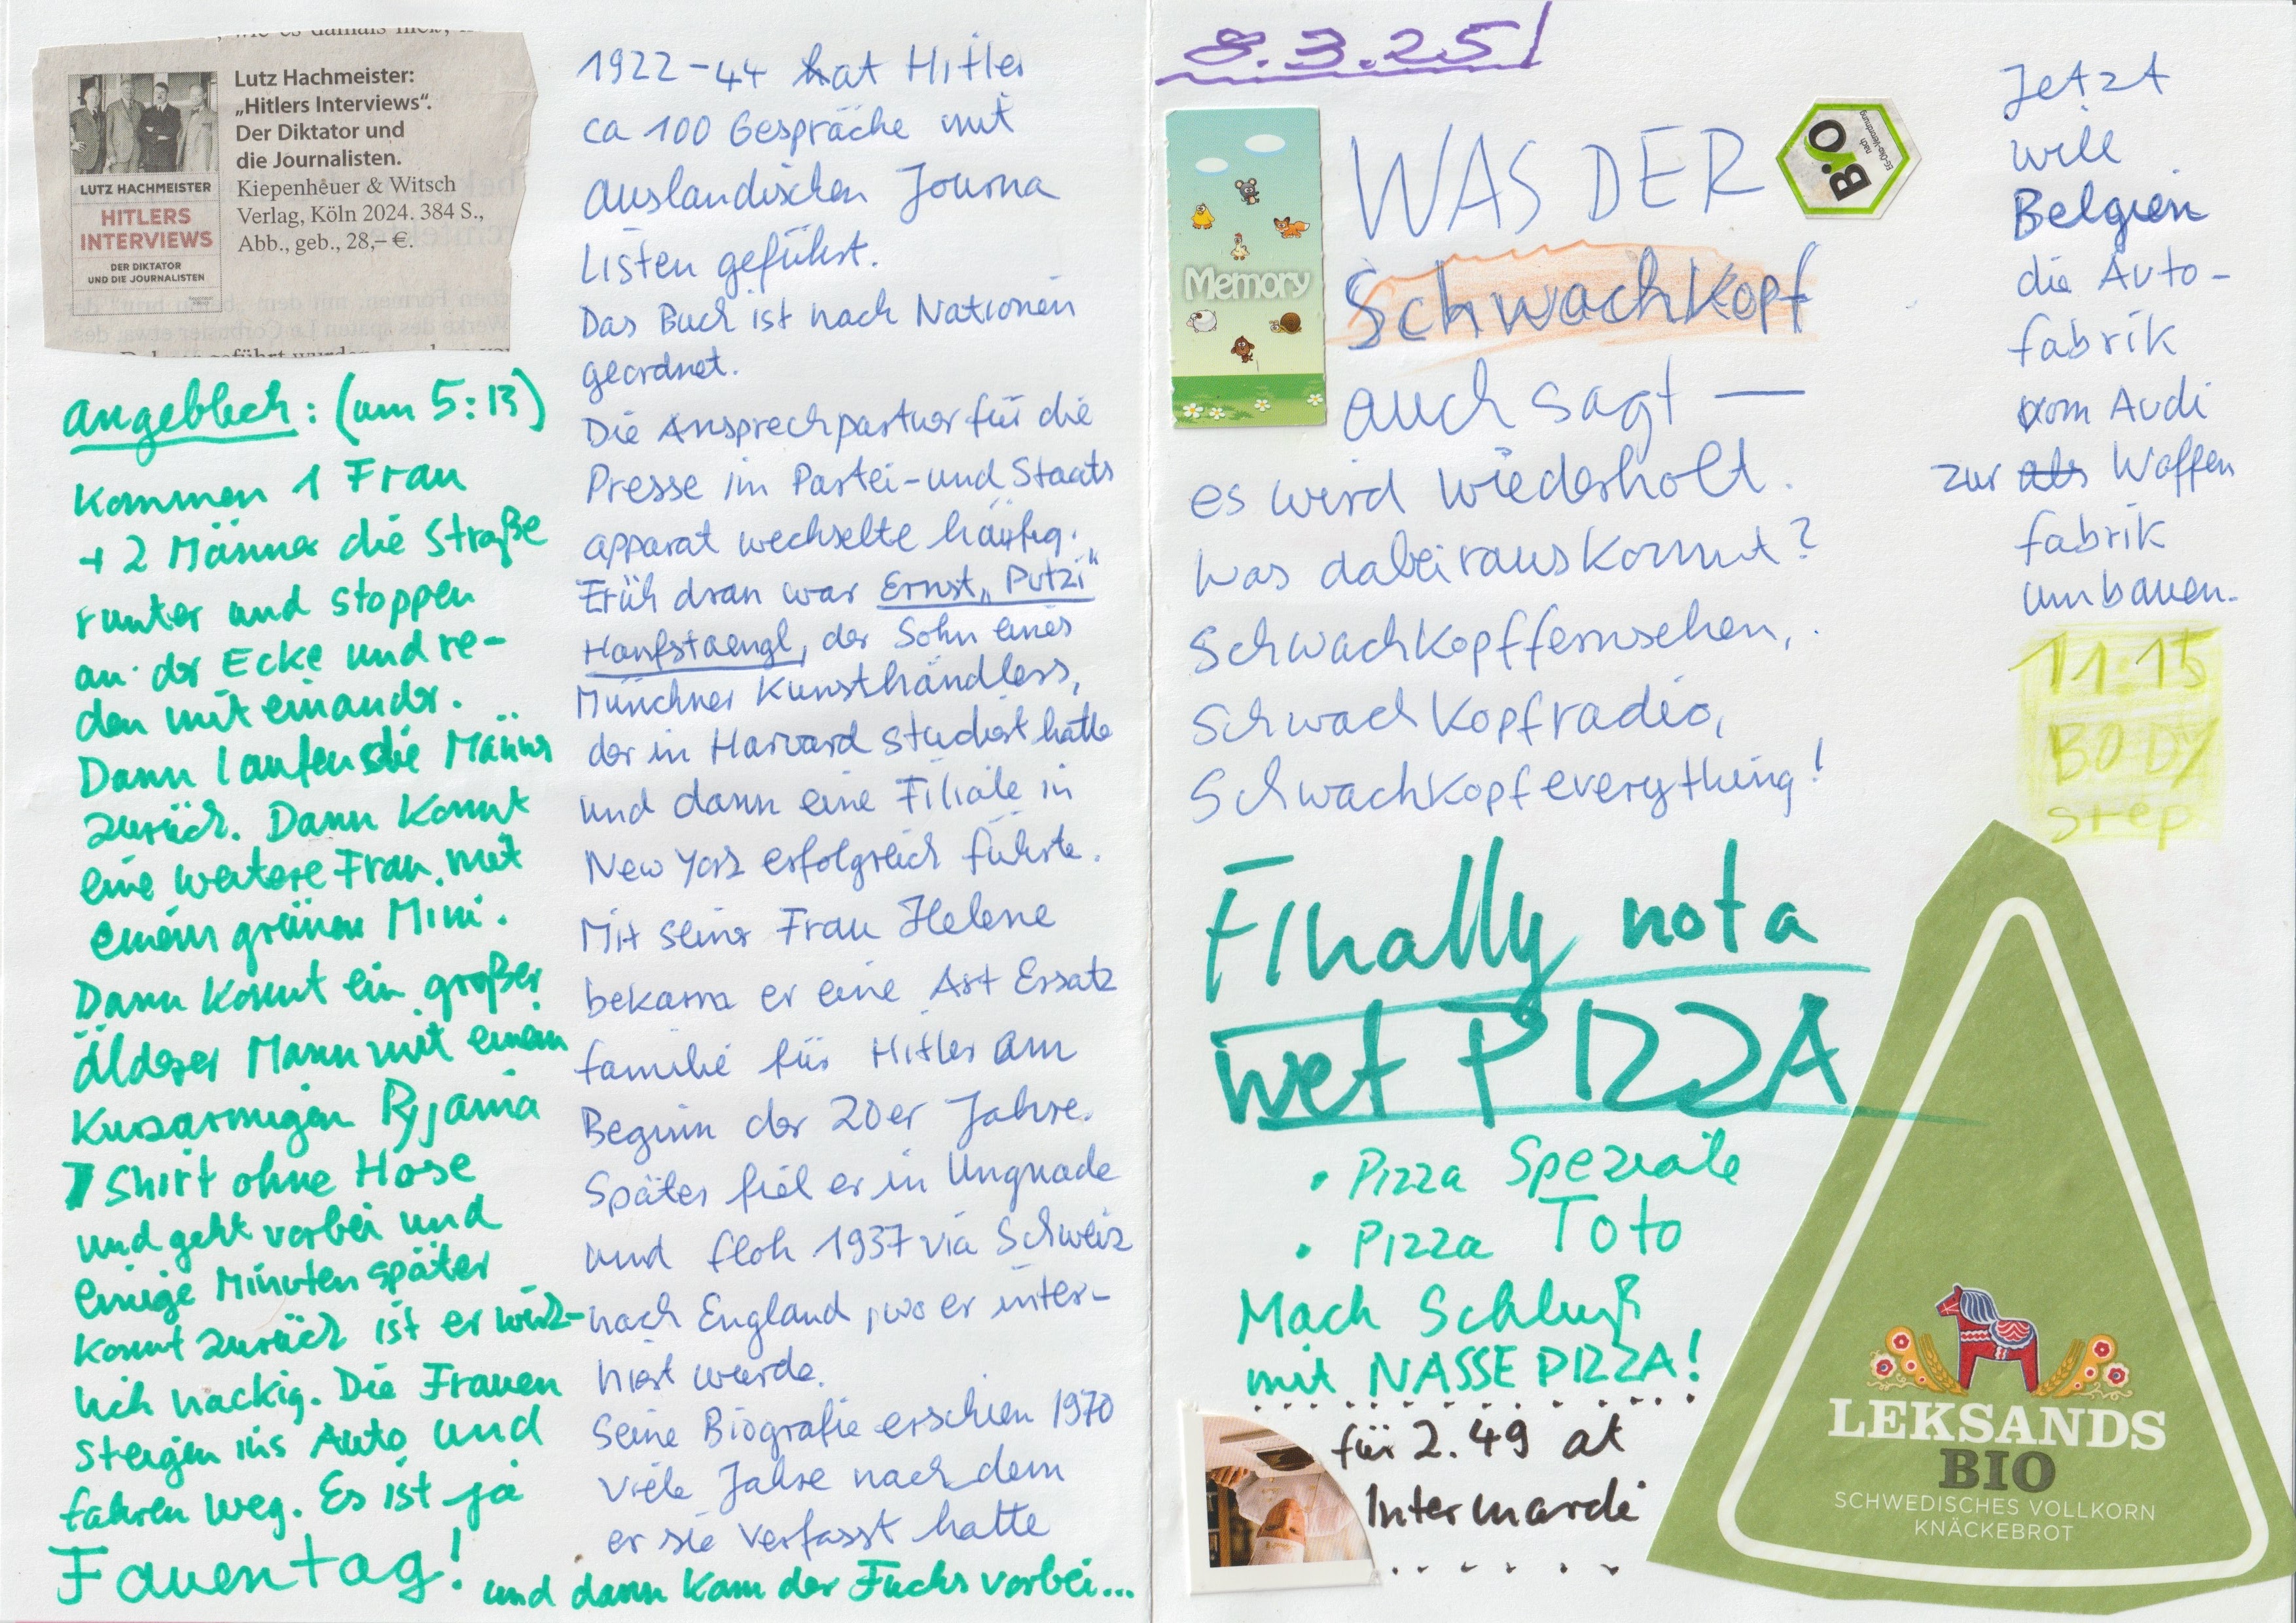 Lutz Hachmeister:
„Hitlers Interviews“.
Der Diktator und
die Journalisten.
Kiepenheuer & Witsch
Verlag, Köln 2024. 384 S.,
Abb., geb., 28,– €.
LUTZ HACHMEISTER
HITLERS
INTERVIEWS
DER DIKTATOR
UND DIE JOURNALISTEN
angeblich: (um 5:13)
Kommen 1 Frau
+ 2 Männer die Straße
runter und stoppen
an der Ecke und re-
den miteinander.
Dann laufen die Männer
zurück. Dann kommt
eine weitere Frau mit
einem grünen Mini.
Dann kommt ein großer
älderer Mann mit einem
Kurzarmigen Pyjama
T Shirt ohne Hose
und geht vorbei und
einige Minuten später
kommt zurück ist er wirk-
lich nackig. Die Frauen
steigen ins Auto und
fahren weg. Es ist ja
Fauentag!
und dann kam der Fuchs vorbei...
1922-44 hat Hitler
ca 100 Gespräche mit
ausländischen Journa
Listen geführt.
Das Buch ist nach Nationen
geordnet.
Die Ansprechpartner für die
Presse im Partei- und Staats
apparat wechselte häufig.
Früh dran war Ernst „Putzi“
Hanfstaengl, der Sohn eines
Münchner Kunsthändlers,
der in Harvard studiert hatte
und dann eine Filiale in
New York erfolgreich führte.
Mit seiner Frau Helene
bekam er eine Art Ersatz
familie für Hitler am
Beginn der 20er Jahre.
Später fiel er in Ungnade
und floh 1937 via Schweiz
nach England, wo er inter-
niert wurde.
Seine Biografie erschien 1970
viele Jahre nach dem
er sie verfasst hatte
8.3.25!
Memory
WAS DER
Schwachkopf
auch sagt —
es wird wiederholt.
Was dabei rauskommt?
Schwachkopffernsehen,
Schwachkopfradio,
Schwachkopfeverything!
BIO
nach
EG-Öko-Verordnung
Jetzt
will
Belgien
die Auto-
fabrik
vom Audi
zur als Waffen
fabrik
umbauen.
11.15
BODY
step
Finally not a
wet PIZZA
• Pizza Speziale
• Pizza Toto
Mach Schluß
mit NASSE PIZZA!
für 2.49 at
Intermarché
LEKSANDS
BIO
SCHWEDISCHES VOLLKORN
KNÄCKEBROT